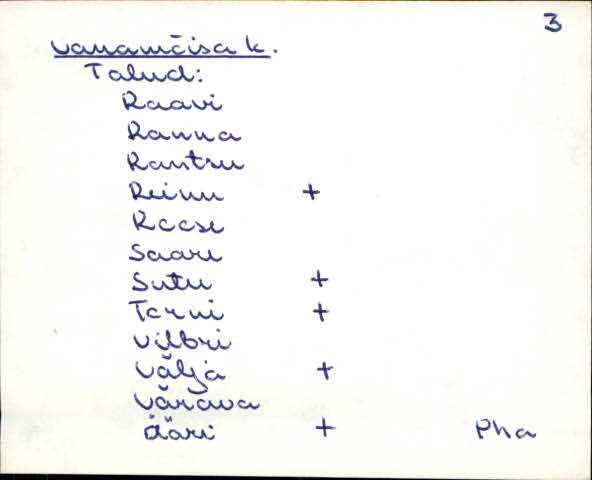 3
Vanamõisa k.
Talud:
Raavi
Ranna
Rantsu
Reinu +
Roosi
Saare
Sutu +
Tarni +
Vilbri
Välja +
Värava
Ääri + Pha